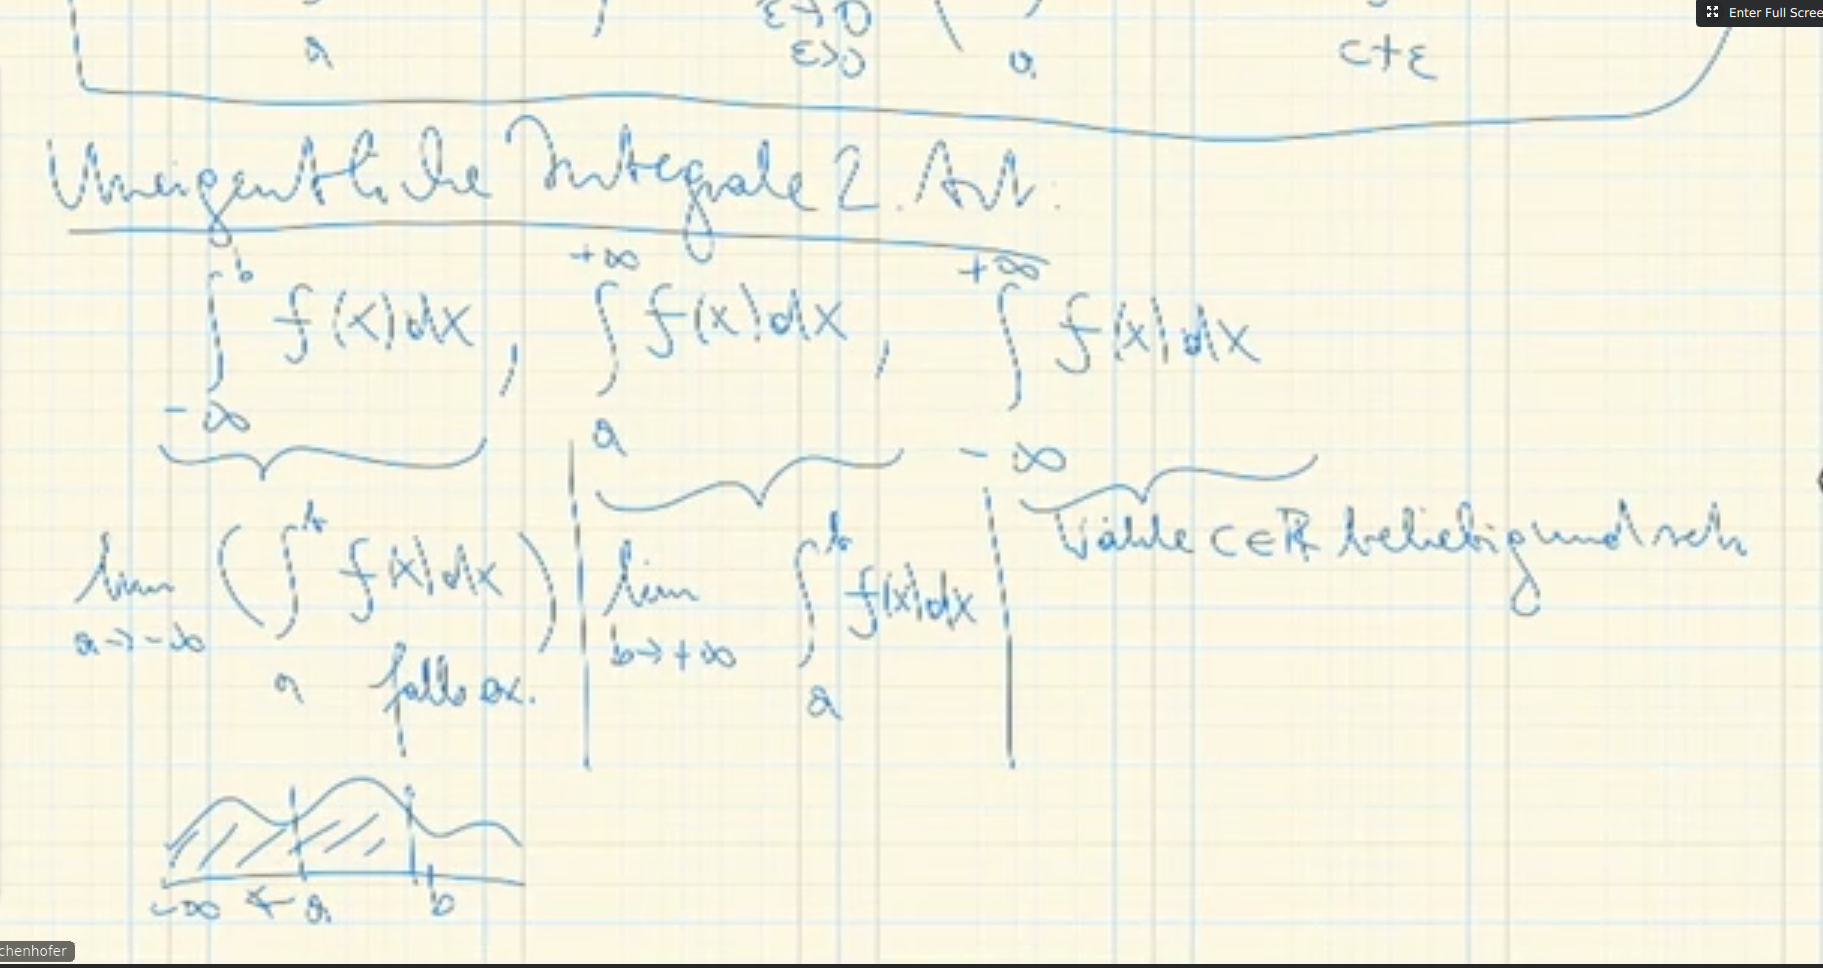 Enter Full Scree
ε→0
a ε>0 a c+ε
Uneigentliche Integrale 2. Art:
∫_{-∞}^{b} f(x)dx, ∫_{a}^{+∞} f(x)dx, ∫_{-∞}^{+∞} f(x)dx
lim_{a→-∞} (∫_{a}^{b} f(x)dx) falls ex.
lim_{b→+∞} ∫_{a}^{b} f(x)dx
Wähle c∈ℝ beliebig und
-∞ ← a b
chenhofer